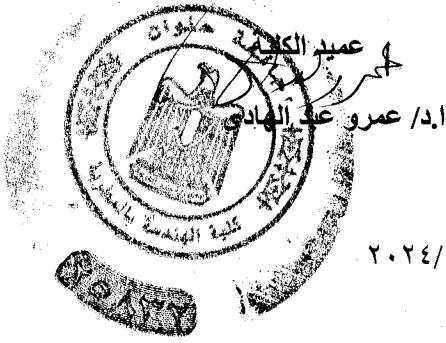 عميد الكلية
ا.د/ عمرو عبد الهادي
حلوان
كلية الهندسة بالمطرية
/٢٠٢٤